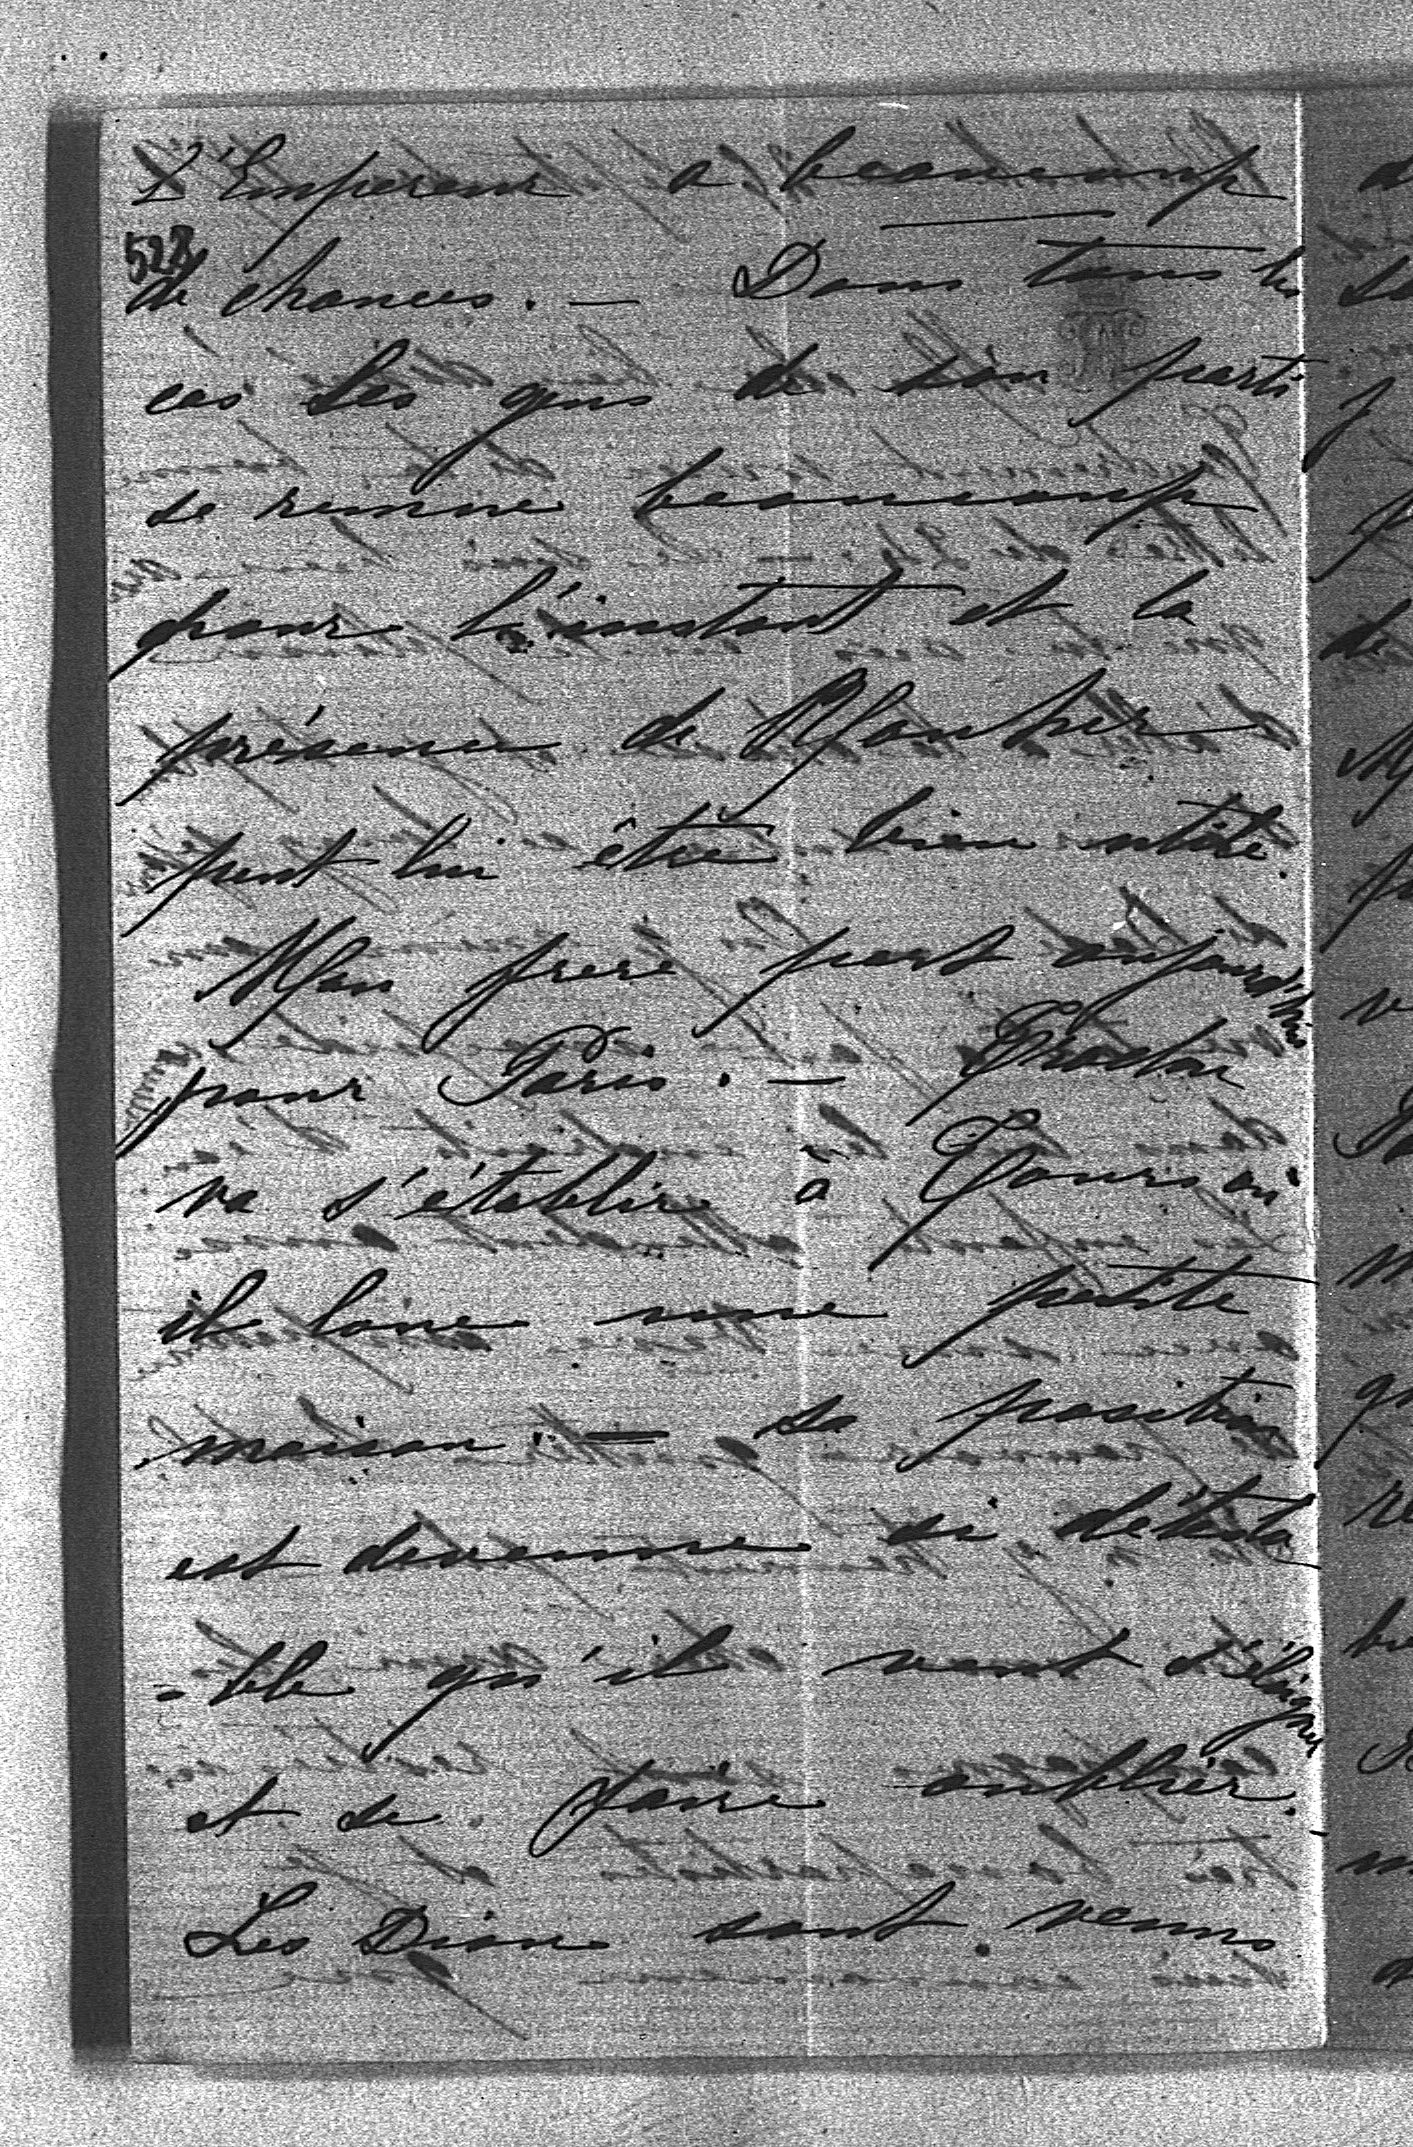 L'Empereur a beaucoup
522
de chances. — Dans tous les
cas les gens de son parti
se remue beaucoup
pour l'instant et la
présence de
peut lui être bien utile.
Mon frere part aujourd'hui
pour Paris. —
va s'établir à Tours où
il loue une petite
maison. — sa position
est devenue si détesta
-ble qu'il veut s'éloigner
et se faire oublier. —
Les Dion sont venus